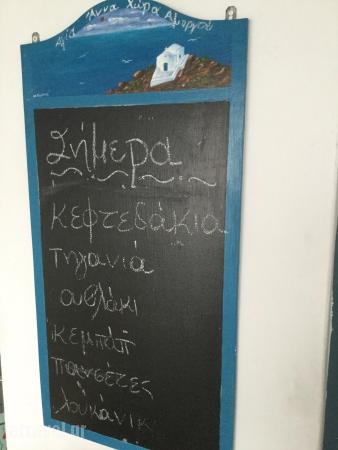 Αγία Άννα Χώρα Αμοργού
Σήμερα
κεφτεδάκια
τηγανιά
ουβλάκι
κεμπάπ
πανσέτες
λουκάνικ